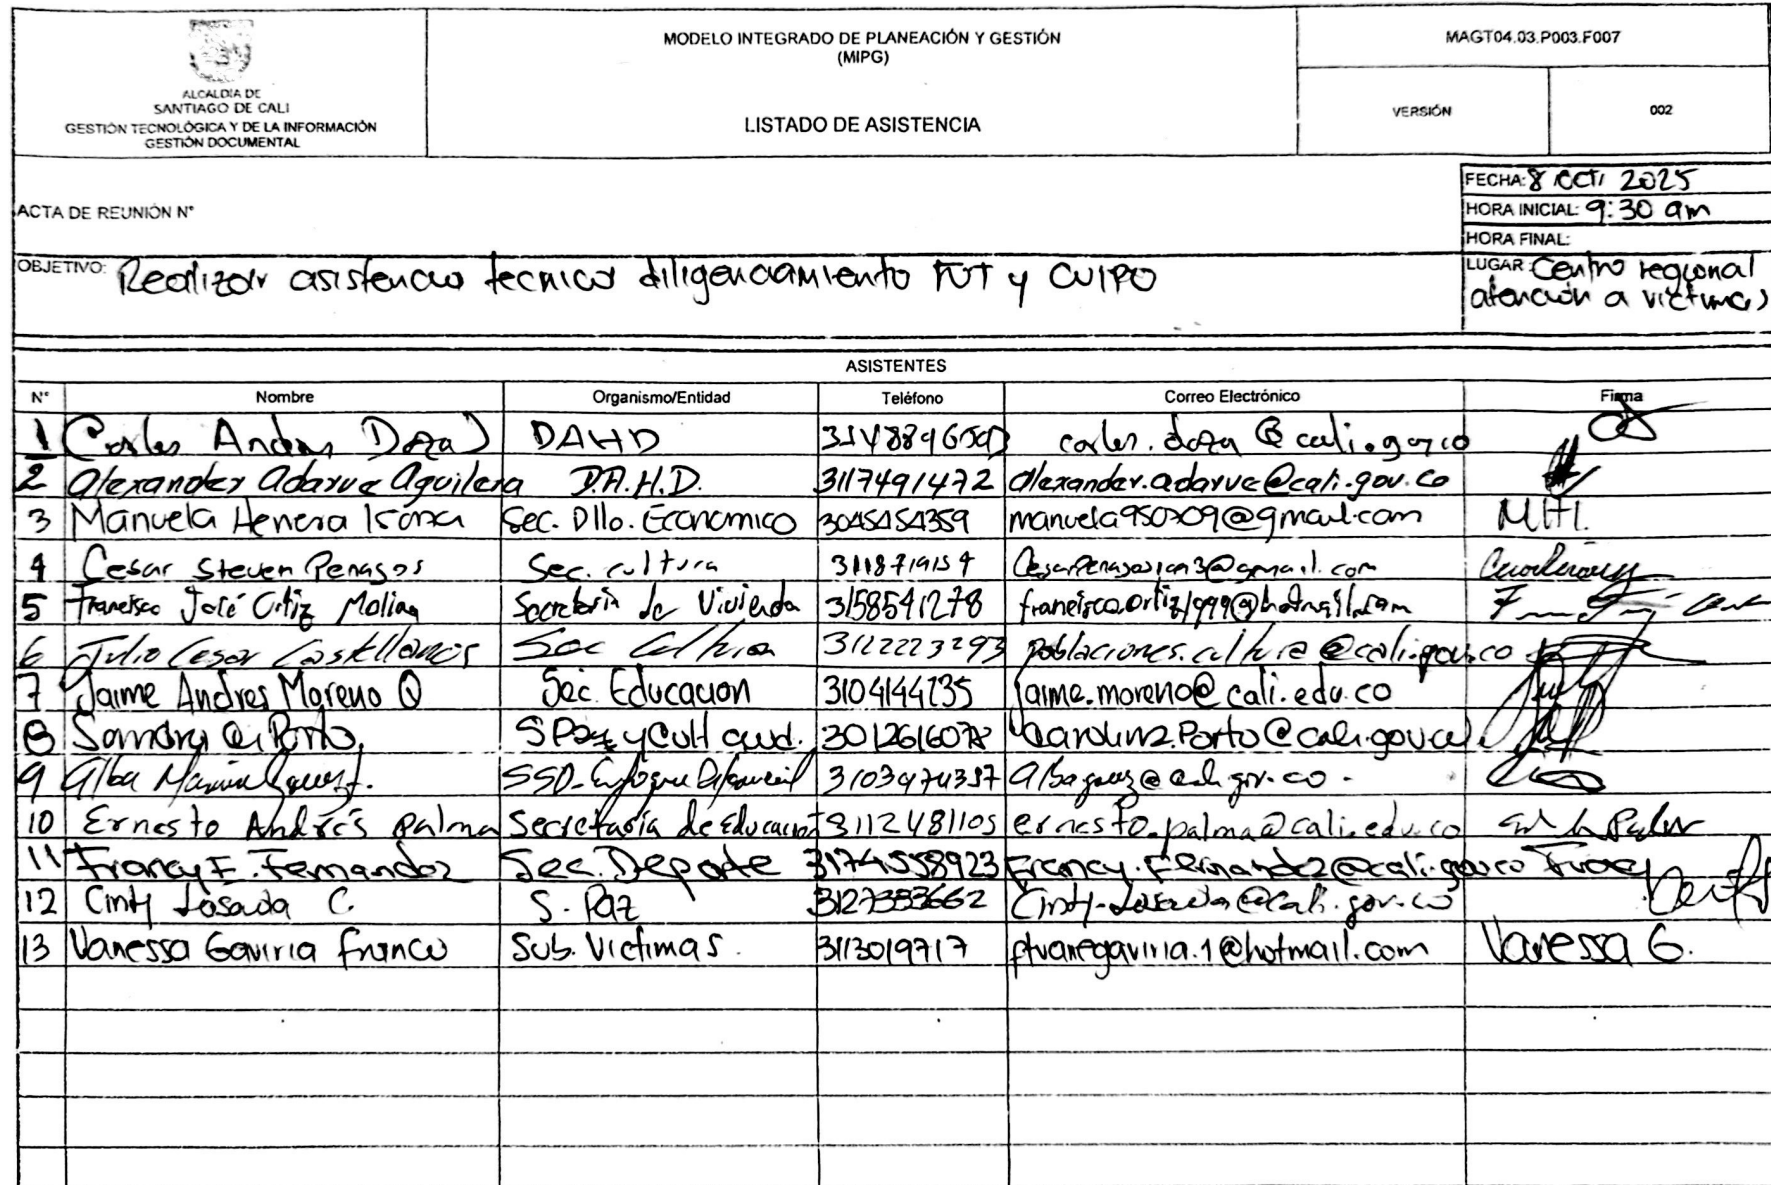 ALCALDÍA DE
SANTIAGO DE CALI
GESTIÓN TECNOLÓGICA Y DE LA INFORMACIÓN
GESTIÓN DOCUMENTAL
MODELO INTEGRADO DE PLANEACIÓN Y GESTIÓN
(MIPG)
LISTADO DE ASISTENCIA
MAGT04.03.P003.F007
VERSIÓN 002
ACTA DE REUNIÓN N°
FECHA: 8 OCT 2025
HORA INICIAL: 9:30 am
HORA FINAL:
LUGAR: Centro regional
atención a victimas
OBJETIVO: Realizar asistencia tecnica diligenciamiento FUT y CUIPO
ASISTENTES
N° Nombre Organismo/Entidad Teléfono Correo Electrónico Firma
1 Carlos Andres Doza DAHD carlos.doza@cali.gov.co
2 Alexander Adarve Aguilera D.A.H.D. 3117491472 alexander.adarve@cali.gov.co
3 Manuela Herrera Sec. Dllo. Economico 3045454359 manuela950209@gmail.com M.H.I.
4 Cesar Steven Penagos Sec. cultura 3118719154
5 Francisco José Ortiz Molina Secretaria de Vivienda 3158541278 francisco.ortiz1999@hotmail.com
6 Julio Cesar Castellanos Sec Cultura 3122223293 poblaciones.cultura@cali.gov.co
7 Jaime Andres Moreno Q Sec. Educacion 3104144235 jaime.moreno@cali.edu.co
8 Sandra C. Porto S Paz y Cult ciud. 3012616078 carolina.Porto@cali.gov.co
9 Alba 3103474337
10 Ernesto Andrés Palma Secretaría de Educación 3112481105 ernesto.palma@cali.edu.co
11 Francy E. Fernandez Sec. Deporte 3174558923 Francy.Fernandez@cali.gov.co Francy
12 Cinty Losada C. S. Paz 3127383662 Cinty.Losada@cali.gov.co
13 Vanessa Gaviria Franco Sub. Victimas. 3113019717 ftvanegaviria.1@hotmail.com Vanessa G.